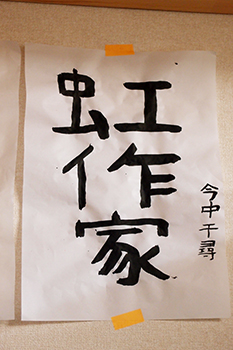 虹作家
今中千尋